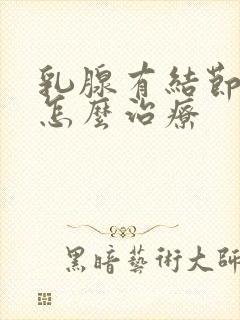 乳腺有結節
怎麼治療
黑暗藝術大師